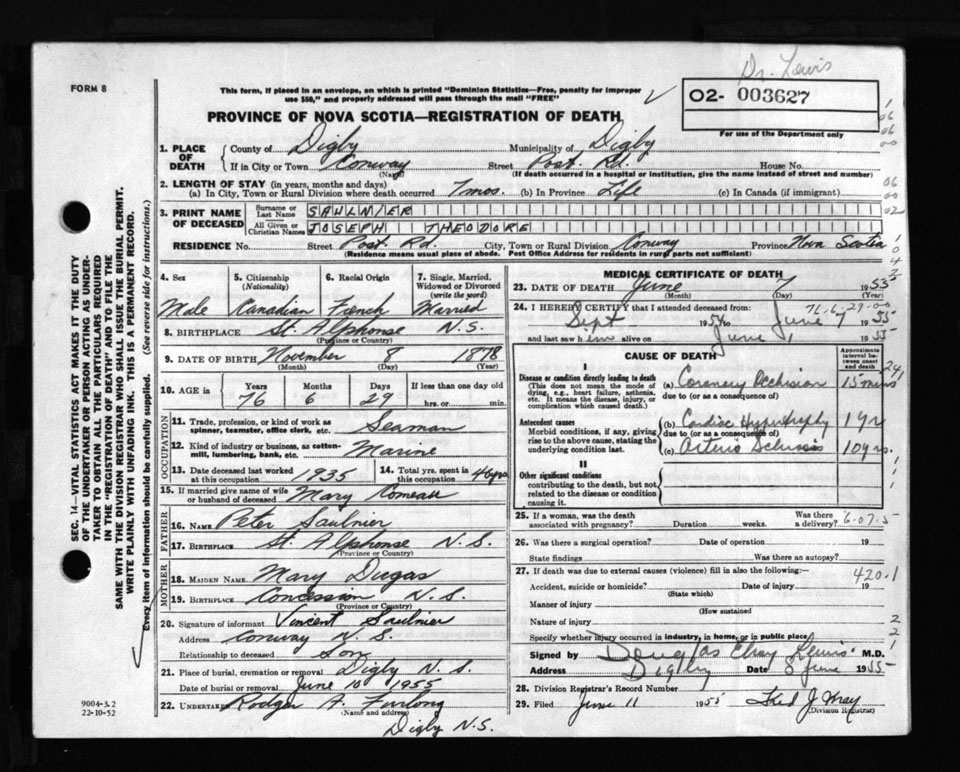 Dr. Lewis
FORM 8
This form, if placed in an envelope, on which is printed "Dominion Statistics—Free, penalty for improper
use $50," and properly addressed will pass through the mail "FREE"
O2- 003627
For use of the Department only
PROVINCE OF NOVA SCOTIA—REGISTRATION OF DEATH
1. PLACE OF DEATH County of Digby Municipality of Digby
If in City or Town Conway (Name) Street Post Rd. House No.
(If death occurred in a hospital or institution, give the name instead of street and number)
2. LENGTH OF STAY (in years, months and days)
(a) In City, Town or Rural Division where death occurred 7 mos. (b) In Province Life (c) In Canada (if immigrant)
3. PRINT NAME OF DECEASED Surname or Last Name SAULNIER
All Given or Christian Names JOSEPH THEODORE
RESIDENCE No. Street Post Rd. City, Town or Rural Division Conway Province Nova Scotia
(Residence means usual place of abode. Post Office Address for residents in rural parts not sufficient)
4. Sex Male
5. Citizenship (Nationality) Canadian
6. Racial Origin French
7. Single, Married, Widowed or Divorced (write the word) Married
8. BIRTHPLACE St. Alphonse N.S.
(Province or Country)
9. DATE OF BIRTH November 8 1878
(Month) (Day) (Year)
10. AGE in Years 76 Months 6 Days 29 If less than one day old hrs. or min.
OCCUPATION
11. Trade, profession, or kind of work as spinner, teamster, office clerk, etc. Seaman
12. Kind of industry or business, as cotton-mill, lumbering, bank, etc. Marine
13. Date deceased last worked at this occupation 1935
14. Total yrs. spent in this occupation 40 yrs
15. If married give name of wife or husband of deceased Mary Comeau
FATHER
16. NAME Peter Saulnier
17. BIRTHPLACE St. Alphonse N.S.
(Province or Country)
MOTHER
18. MAIDEN NAME Mary Dugas
19. BIRTHPLACE Concession N.S.
(Province or Country)
20. Signature of informant Vincent Saulnier
Address Conway N.S.
Relationship to deceased Son
21. Place of burial, cremation or removal Digby N.S.
Date of burial or removal June 10 1955
22. UNDERTAKER Rodger H. Furlong
(Name and address)
Digby N.S.
MEDICAL CERTIFICATE OF DEATH
23. DATE OF DEATH June 7 1955
(Month) (Day) (Year)
76-6-29-00
24. I HEREBY CERTIFY that I attended deceased from:
Sept 1954 to June 7 1955
and last saw him alive on June 1 1955
CAUSE OF DEATH
Approximate interval between onset and death
I
Disease or condition directly leading to death
(This does not mean the mode of dying, e.g., heart failure, asthenia, etc. It means the disease, injury, or complication which caused death.)
(a) Coronary Occlusion 15 mins
due to (or as a consequence of)
Antecedent causes
Morbid conditions, if any, giving rise to the above cause, stating the underlying condition last.
(b) Cardiac Hypertrophy 1 yr
due to (or as a consequence of)
(c) Arterio Sclerosis 10 yrs.
II
Other significant conditions
contributing to the death, but not related to the disease or condition causing it.
25. If a woman, was the death associated with pregnancy? Duration weeks. Was there a delivery?
6-07.5
26. Was there a surgical operation? Date of operation 19
State findings Was there an autopsy?
27. If death was due to external causes (violence) fill in also the following:—
420.1
Accident, suicide or homicide? Date of injury 19
(State which)
Manner of injury
(How sustained
Nature of injury
Specify whether injury occurred in industry, in home, or in public place
Signed by Douglas Lewis M.D.
Address Digby Date 8 June 1955
28. Division Registrar's Record Number
29. Filed June 11 1955 Fred J. Wray
(Division Registrar)
SEC. 14—VITAL STATISTICS ACT MAKES IT THE DUTY
OF THE UNDERTAKER OR PERSON ACTING AS UNDER-
TAKER TO OBTAIN ALL THE PARTICULARS REQUIRED
IN THE "REGISTRATION OF DEATH" AND TO FILE THE
SAME WITH THE DIVISION REGISTRAR WHO SHALL ISSUE THE BURIAL PERMIT.
WRITE PLAINLY WITH UNFADING INK. THIS IS A PERMANENT RECORD.
Every item of information should be carefully supplied. (See reverse side for instructions.)
9004-3.2
22-10-52